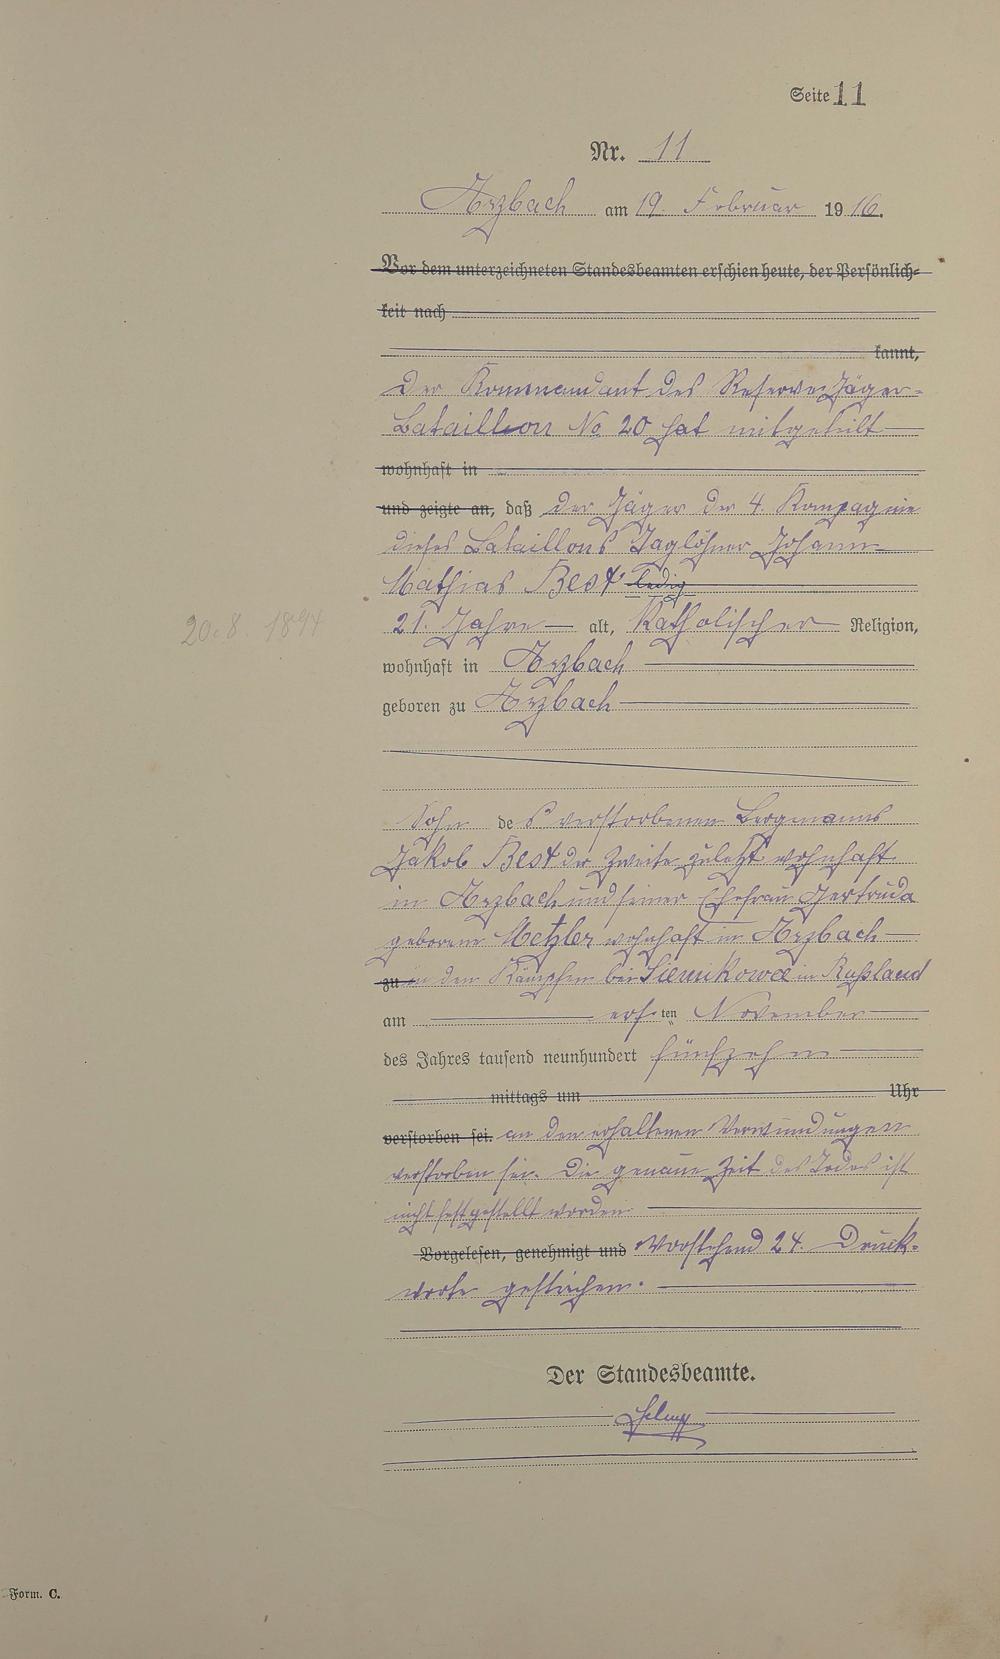 Seite 11
Nr. 11
Arzbach am 19. Februar 1916.
Vor dem unterzeichneten Standesbeamten erschien heute, der Persönlich-
keit nach
kannt,
Der Kommandant des Reserve-Jäger-
Bataillon No 20 hat mitgeteilt
wohnhaft in
und zeigte an, daß der Jäger der 4. Kompagnie
dieses Bataillons Taglöhner Johann
Mathias Best ledig
20.8.1894
21. Jahre alt, Katholischer Religion,
wohnhaft in Arzbach
geboren zu Arzbach
Sohn des verstorbenen Bergmanns
Jakob Best der Zweite zuletzt wohnhaft
in Arzbach und seiner Ehefrau Gertruda
geborene Metzler wohnhaft in Arzbach
zu in den Kämpfen bei Siemikowce in Rußland
am ersten November
des Jahres tausend neunhundert fünfzehn
mittags um Uhr
verstorben sei. an den erhaltenen Verwundungen
verstorben sei. Die genaue Zeit des Todes ist
nicht festgestellt worden.
Vorgelesen, genehmigt und Vorstehend 24. Druck-
worte gestrichen.
Der Standesbeamte.
Form. C.